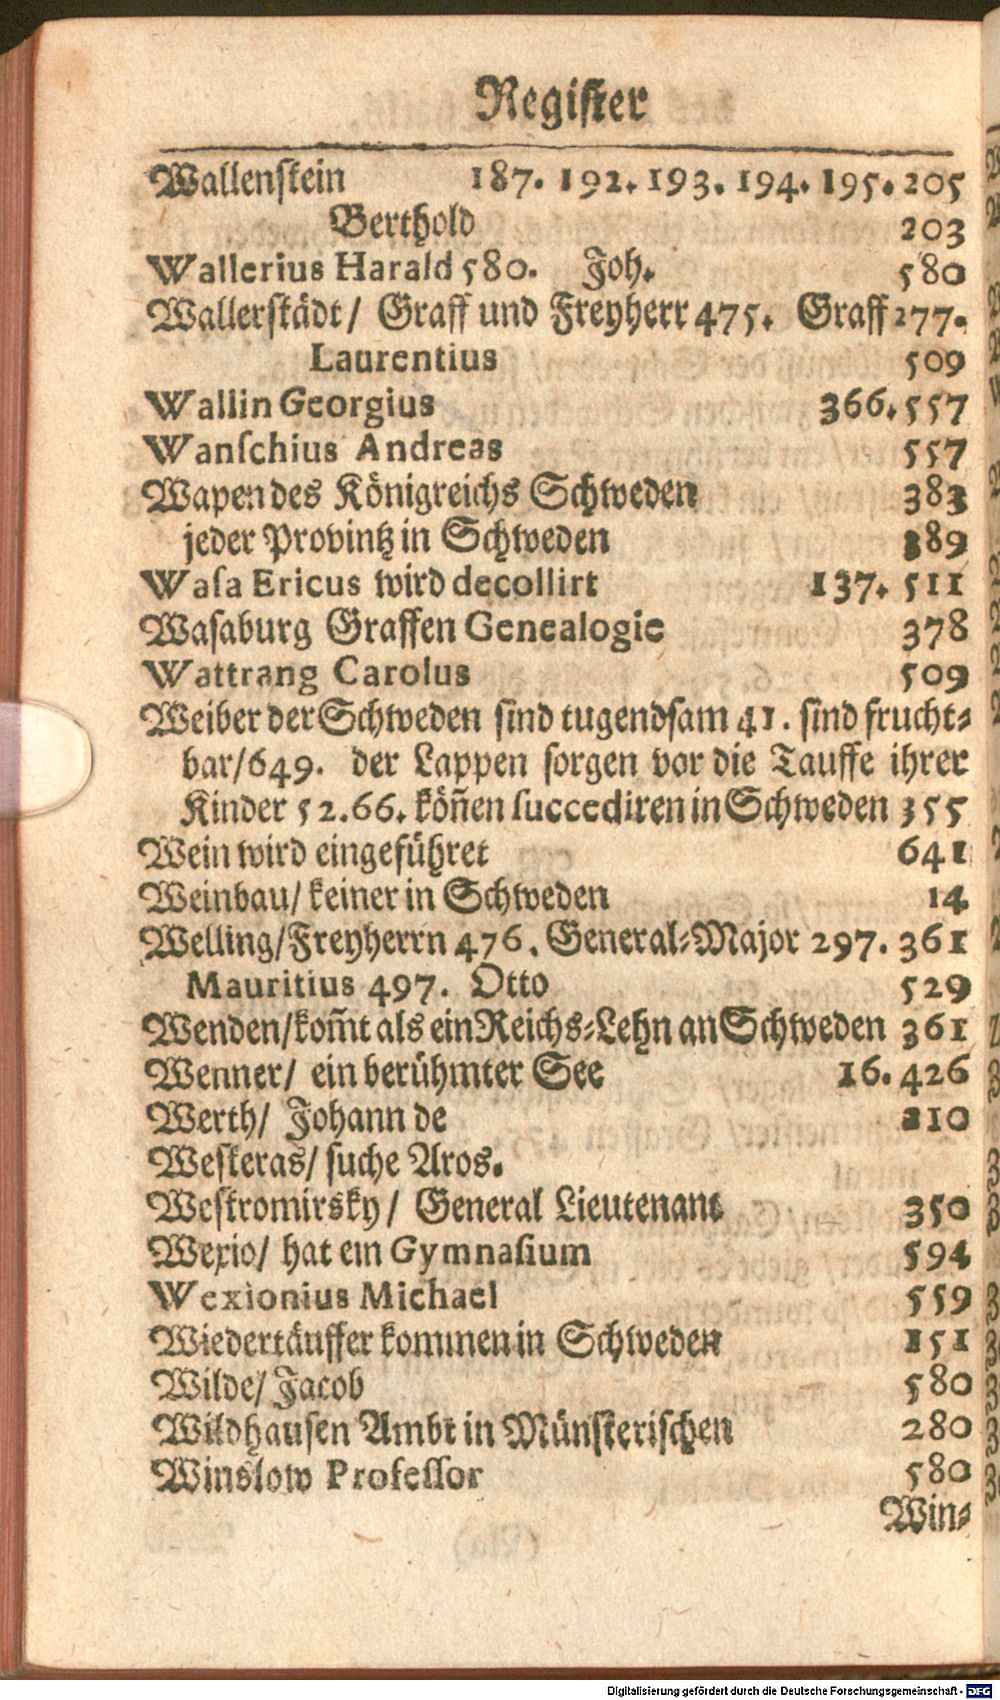 Register
Wallenstein 187. 192. 193. 194. 195. 205
Berthold 203
Wallerius Harald 580. Joh. 580
Wallerstädt/ Graff und Freyherr 475. Graff 277.
Laurentius 509
Wallin Georgius 366. 557
Wanſchius Andreas 557
Wapen des Königreichs Schweden 383
jeder Provintz in Schweden 389
Waſa Ericus wird decollirt 137. 511
Wasaburg Graffen Genealogie 378
Wattrang Carolus 509
Weiber der Schweden sind tugendsam 41. sind frucht-
bar/ 649. der Lappen sorgen vor die Tauffe ihrer
Kinder 52. 66. köñen ſuccediren in Schweden 355
Wein wird eingeführet 641
Weinbau/ keiner in Schweden 14
Welling/ Freyherrn 476. General-Major 297. 361
Mauritius 497. Otto 529
Wenden/ kom̃t als ein Reichs-Lehn an Schweden 361
Wenner/ ein berühmter See 16. 426
Werth/ Johann de 210
Westeras/ suche Aros.
Westromirsky/ General Lieutenant 350
Wexio/ hat ein Gymnaſium 594
Wexionius Michael 559
Wiedertäuffer kommen in Schweden 151
Wilde/ Jacob 580
Wildhausen Ambt in Münsterischen 280
Winslow Profeſſor 580
Win-
Digitalisierung gefördert durch die Deutsche Forschungsgemeinschaft - DFG